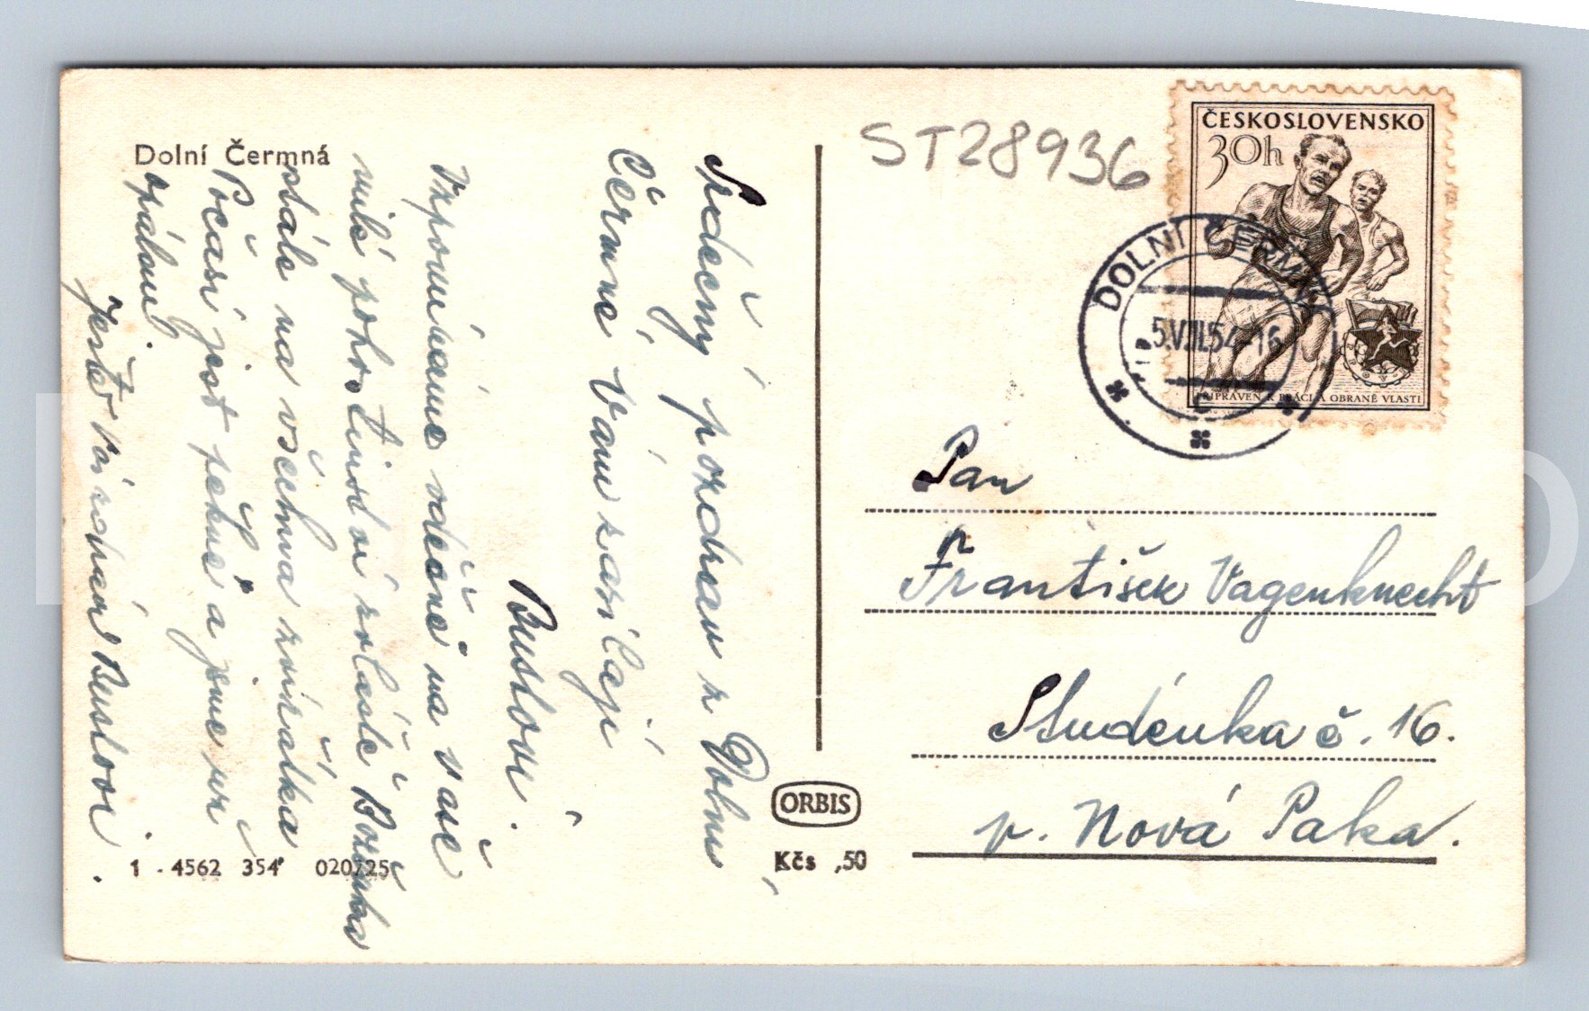 Dolní Čermná
Srdečný pozdrav z Dolní
Čermné Vám zasílají
Buslovi.
Vzpomínáme vděčně na vaše
milé pohostinství zvláště Boženka
stále na všechna zvířátka
Počasí jest pěkné a jsme už
opálení.
Ještě Vás zdraví Buslovi.
1 - 4562 354 020725
ORBIS
Kčs ,50
ST28936
ČESKOSLOVENSKO
30h
PŘIPRAVEN K PRÁCI A OBRANĚ VLASTI
DOLNÍ ČERMNÁ
5.VIII.54-16
c
Pan
František Vagenknecht
Studénka č. 16.
p. Nová Paka.